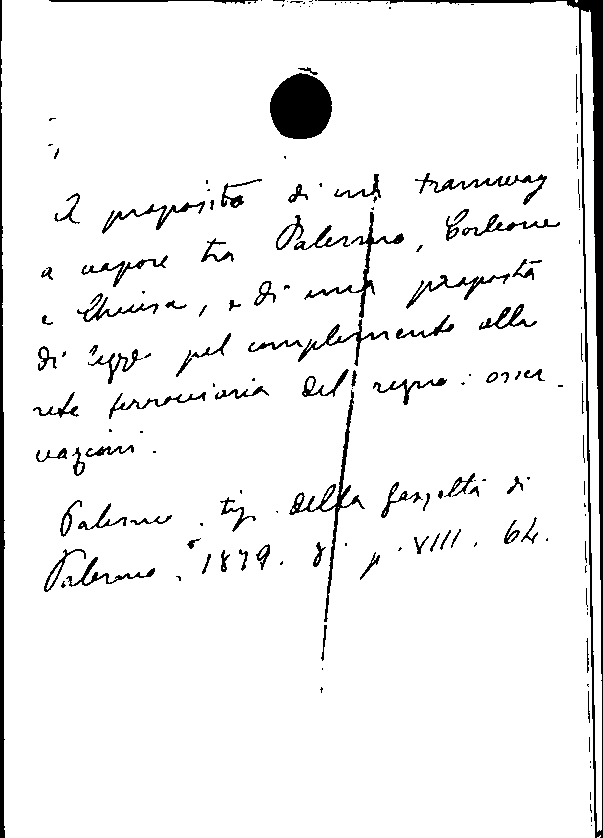 A proposito di un tramway
a vapore tra Palermo, Corleone
e Chiusa, e di una proposta
di legge pel complemento alla
rete ferroviaria del regno: osser-
vazioni.
Palermo, tip. della Gazzetta di
Palermo, 1879. 8° p. VIII. 64.